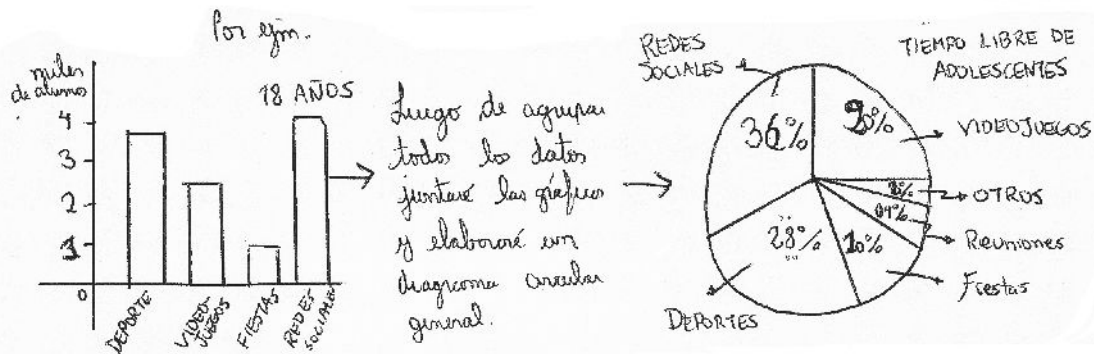 Por ejm.
miles
de alumnos
18 AÑOS
4
3
2
1
0
DEPORTE
VIDEO-
JUEGOS
FIESTAS
REDES
SOCIALES
Luego de agrupar
todos los datos
juntaré las gráficas
y elaboraré un
diagrama circular
general.
REDES
SOCIALES
TIEMPO LIBRE DE
ADOLESCENTES
36%
VIDEOJUEGOS
OTROS
04%
Reuniones
28%
10%
Fiestas
DEPORTES